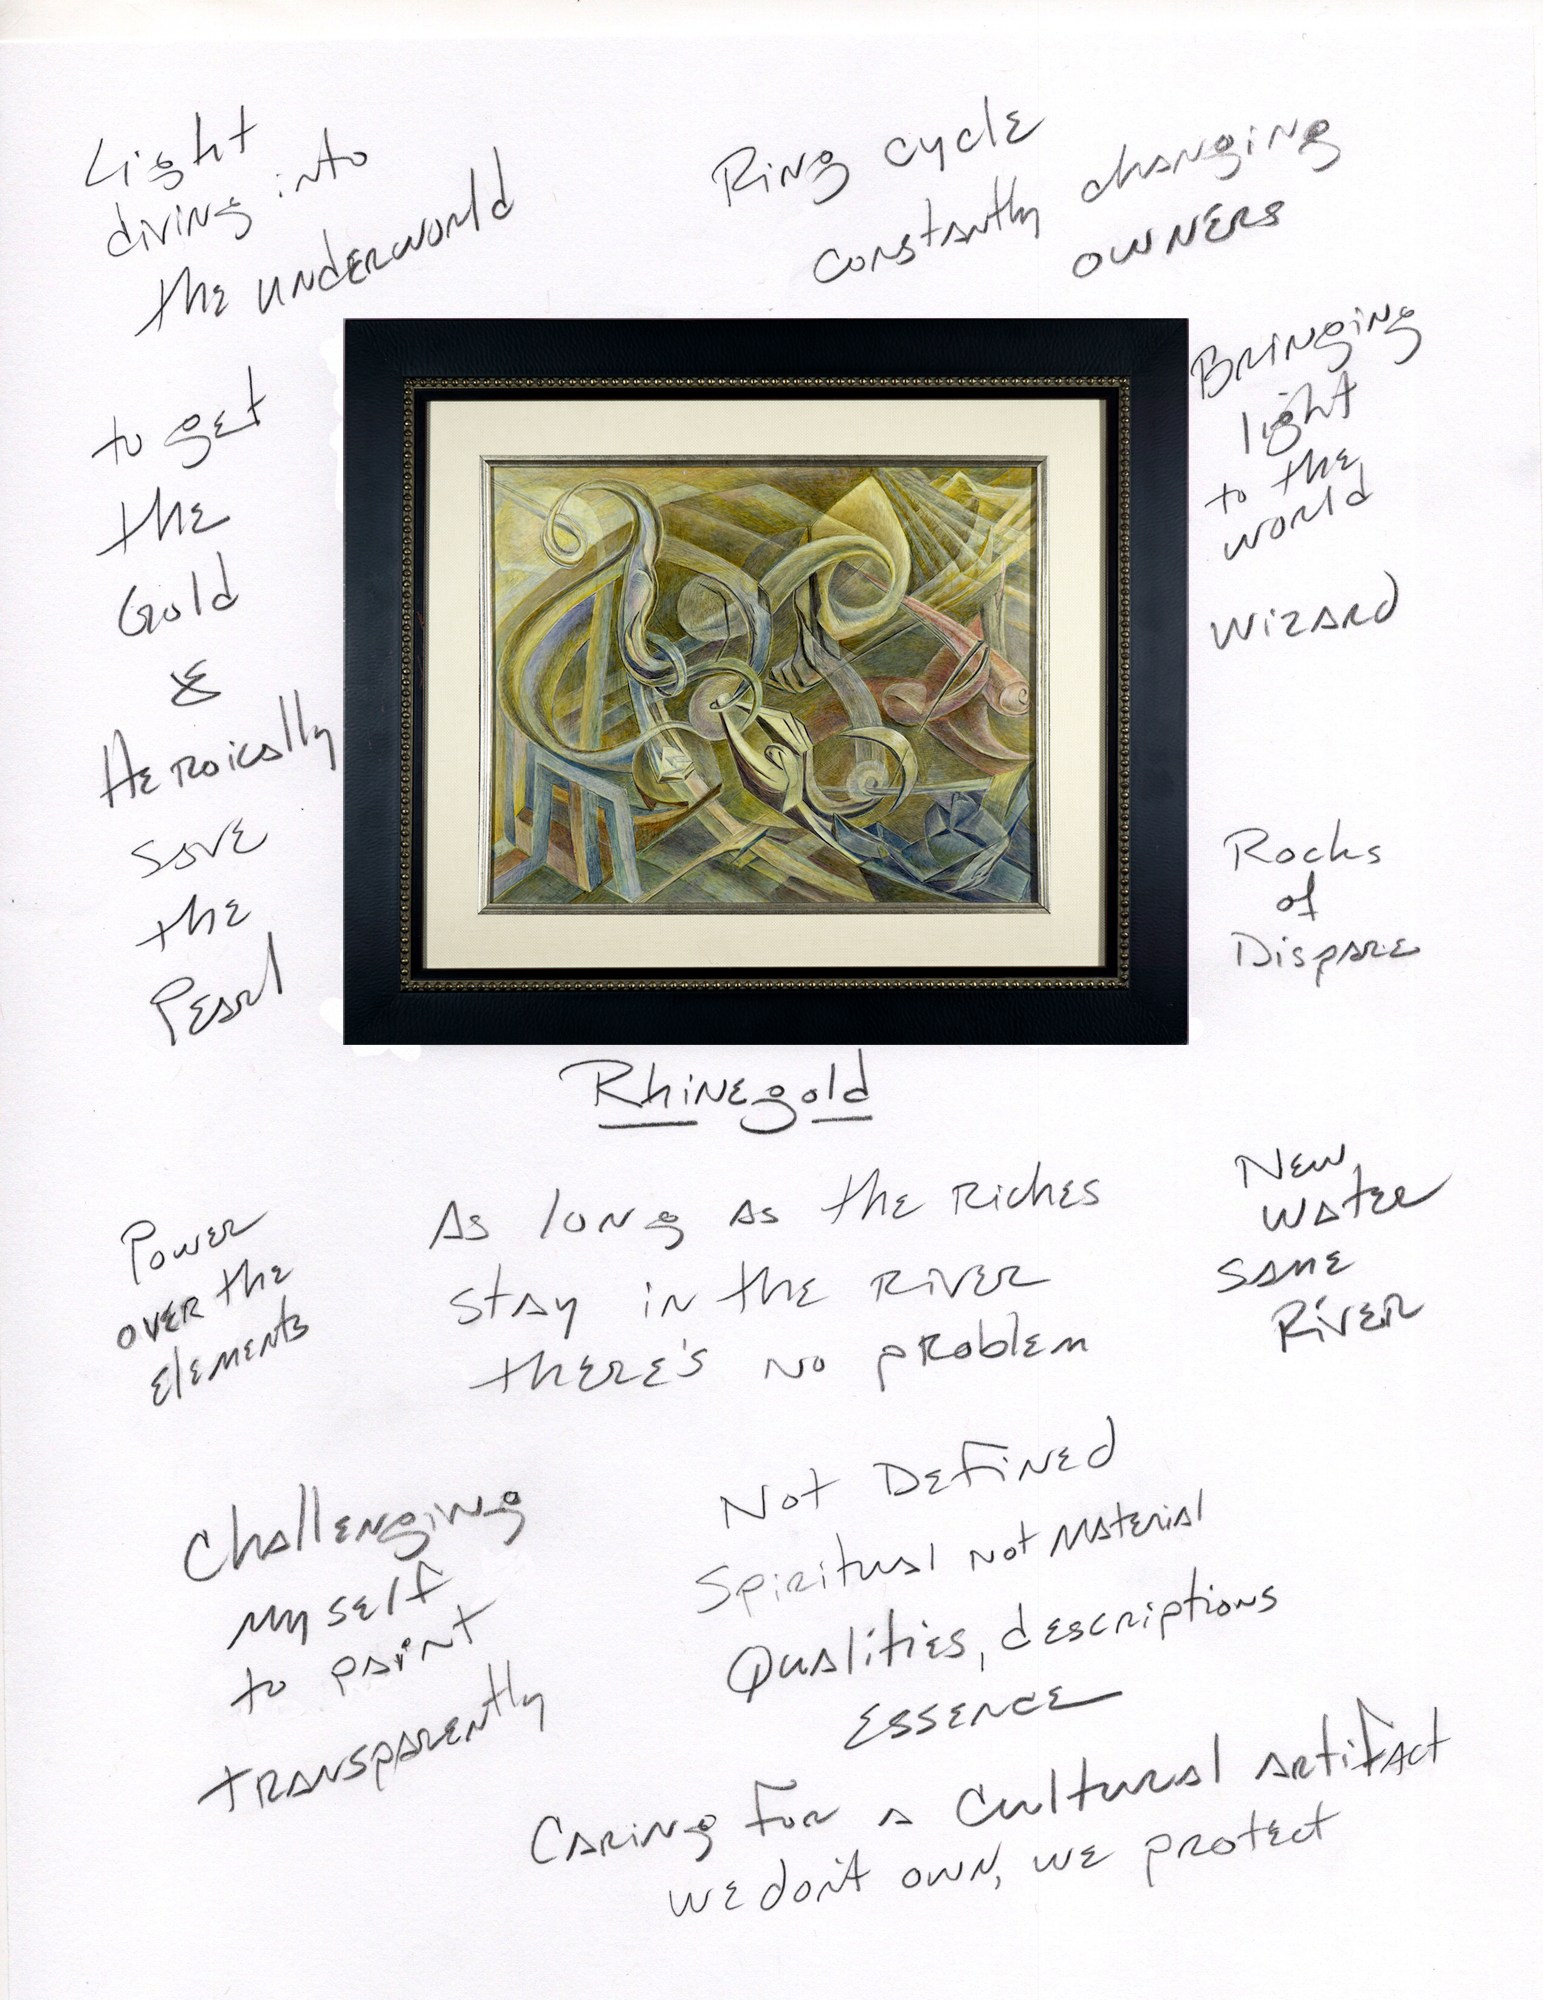 Light
diving into
the underworld
Ring cycle
constantly changing
owners
to get
the
Gold
&
Heroically
save
the
Pearl
Bringing
light
to the
world
Wizard
Rocks
of
Dispare
Rhinegold
Power
over the
Elements
As long as the riches
stay in the river
there's no problem
New
water
same
River
Challenging
myself
to paint
transparently
Not Defined
Spiritual not material
Qualities, descriptions
Essence
Caring for a cultural artifact
we don't own, we protect